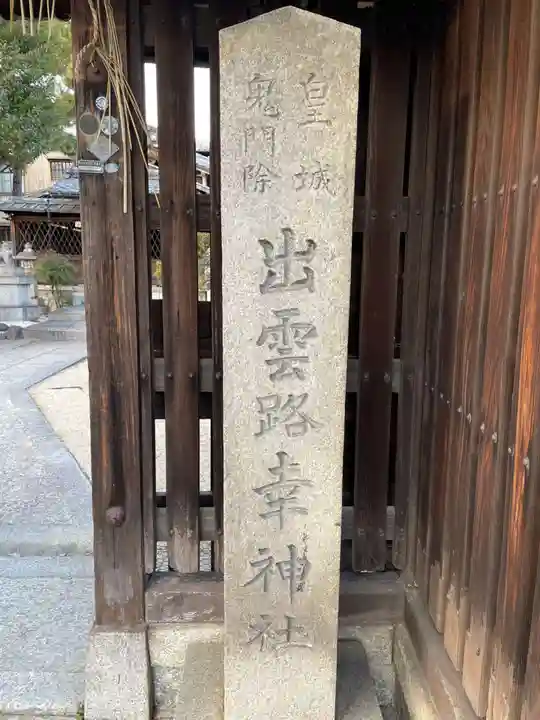 皇城
鬼門除
出雲路幸神社